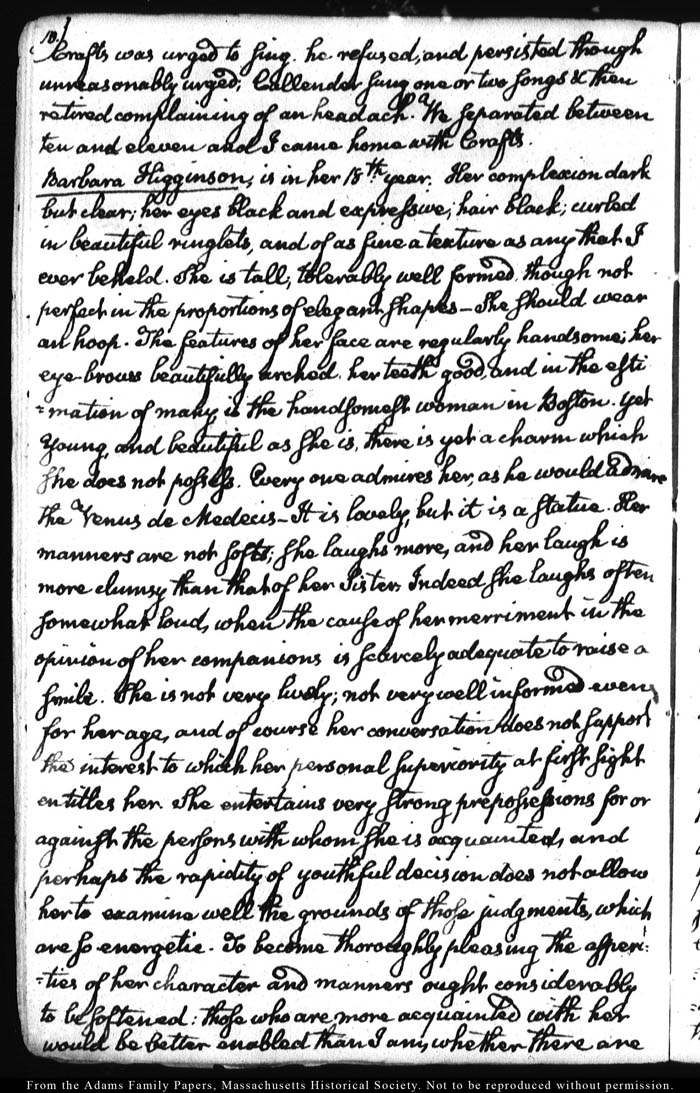 10.
Crafts was urged to sing. he refused, and persisted though
unreasonably urged; Callender sung one or two songs & then
retired complaining of an head ach. We separated between
ten and eleven and I came home with Crafts.
Barbara Higginson, is in her 18th year. Her complexion dark
but clear; her eyes black and expressive; hair black; curled
in beautiful ringlets, and of as fine a texture as any that I
ever beheld. She is tall; tolerably well formed, though not
perfect in the proportions of elegant shapes—She should wear
an hoop. The features of her face are regularly handsome; her
eye-brows beautifully arched. her teeth good, and in the esti
=mation of many is the handsomest woman in Boston. Yet
young, and beautiful as she is, there is yet a charm which
she does not possess. Every one admires her, as he would admire
the Venus de Medecis—It is lovely, but it is a statue. Her
manners are not soft; she laughs more, and her laugh is
more clumsy than that of her Sister. Indeed she laughs often
somewhat loud, when the cause of her merriment in the
opinion of her companions is scarcely adequate to raise a
smile. She is not very lively; not very well informed even
for her age, and of course her conversation does not support
the interest to which her personal superiority at first sight
entitles her. She entertains very strong prepossessions for or
against the persons with whom she is acquainted, and
perhaps the rapidity of youthful decision does not allow
her to examine well the grounds of those judgments, which
are so energetic. To become thoroughly pleasing the asperi:
=ties of her character and manners ought considerably
to be softened: those who are more acquainted with her
would be better enabled than I am, whether there are
From the Adams Family Papers, Massachusetts Historical Society. Not to be reproduced without permission.